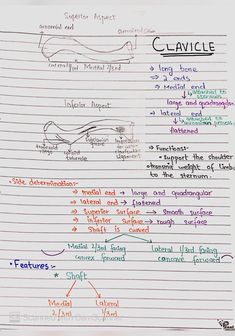 Superior Aspect
acromial end
CLAVICLE
→ long bone
→ 2 ends
→ Medial end
↳ attached to sternum
large and quadrangular
→ lateral end
↳ attached to acromion process
flattened
Inferior Aspect
• Functions:-
• Support the shoulder
• transmit weight of limb
to the sternum.
• Side determination:-
→ medial end → large and quadrangular
→ lateral end → flattened
→ Superior surface → smooth surface
→ inferior surface → rough surface
→ Shaft is curved
Medial 2/3rd facing
convex forward
Lateral 1/3rd facing
concave forward
• Features:-
* Shaft
Medial
2/3rd
Lateral
1/3rd